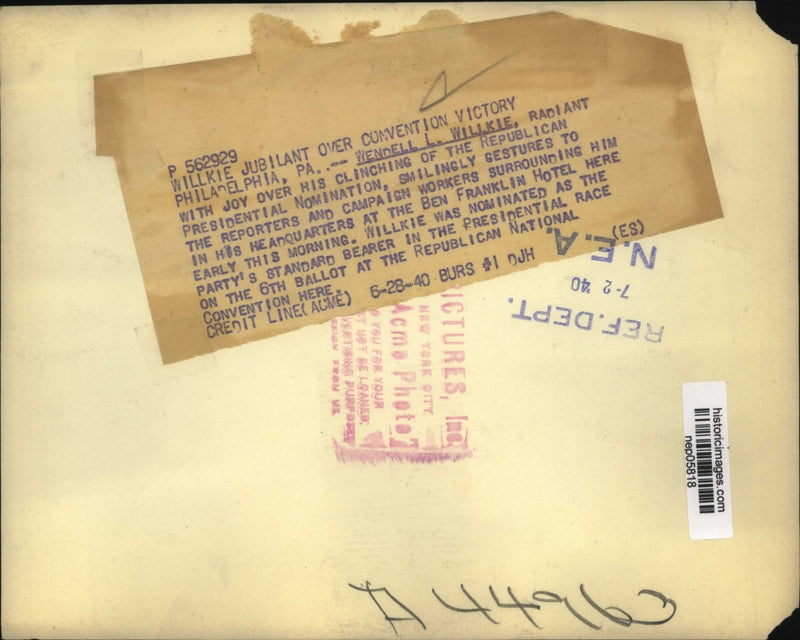 P 562929
WILLKIE JUBILANT OVER CONVENTION VICTORY
PHILADELPHIA, PA..-- WENDELL L. WILLKIE, RADIANT
WITH JOY OVER HIS CLINCHING OF THE REPUBLICAN
PRESIDENTIAL NOMINATION, SMILINGLY GESTURES TO
THE REPORTERS AND CAMPAIGN WORKERS SURROUNDING HIM
IN HIS HEADQUARTERS AT THE BEN FRANKLIN HOTEL HERE
EARLY THIS MORNING. WILLKIE WAS NOMINATED AS THE
PARTY'S STANDARD BEARER IN THE PRESIDENTIAL RACE
ON THE 6TH BALLOT AT THE REPUBLICAN NATIONAL
CONVENTION HERE.
CREDIT LINE(ACME) 6-28-40 BURS #1 DJH (ES)
REF. DEPT.
7-2 '40
N.E.A.
ICTURES, Inc
NEW YORK CITY
Acme Photo
YOU FOR YOUR
NOT BE LOANED,
PURPOSE
FROM
historicimages.com
nep05818